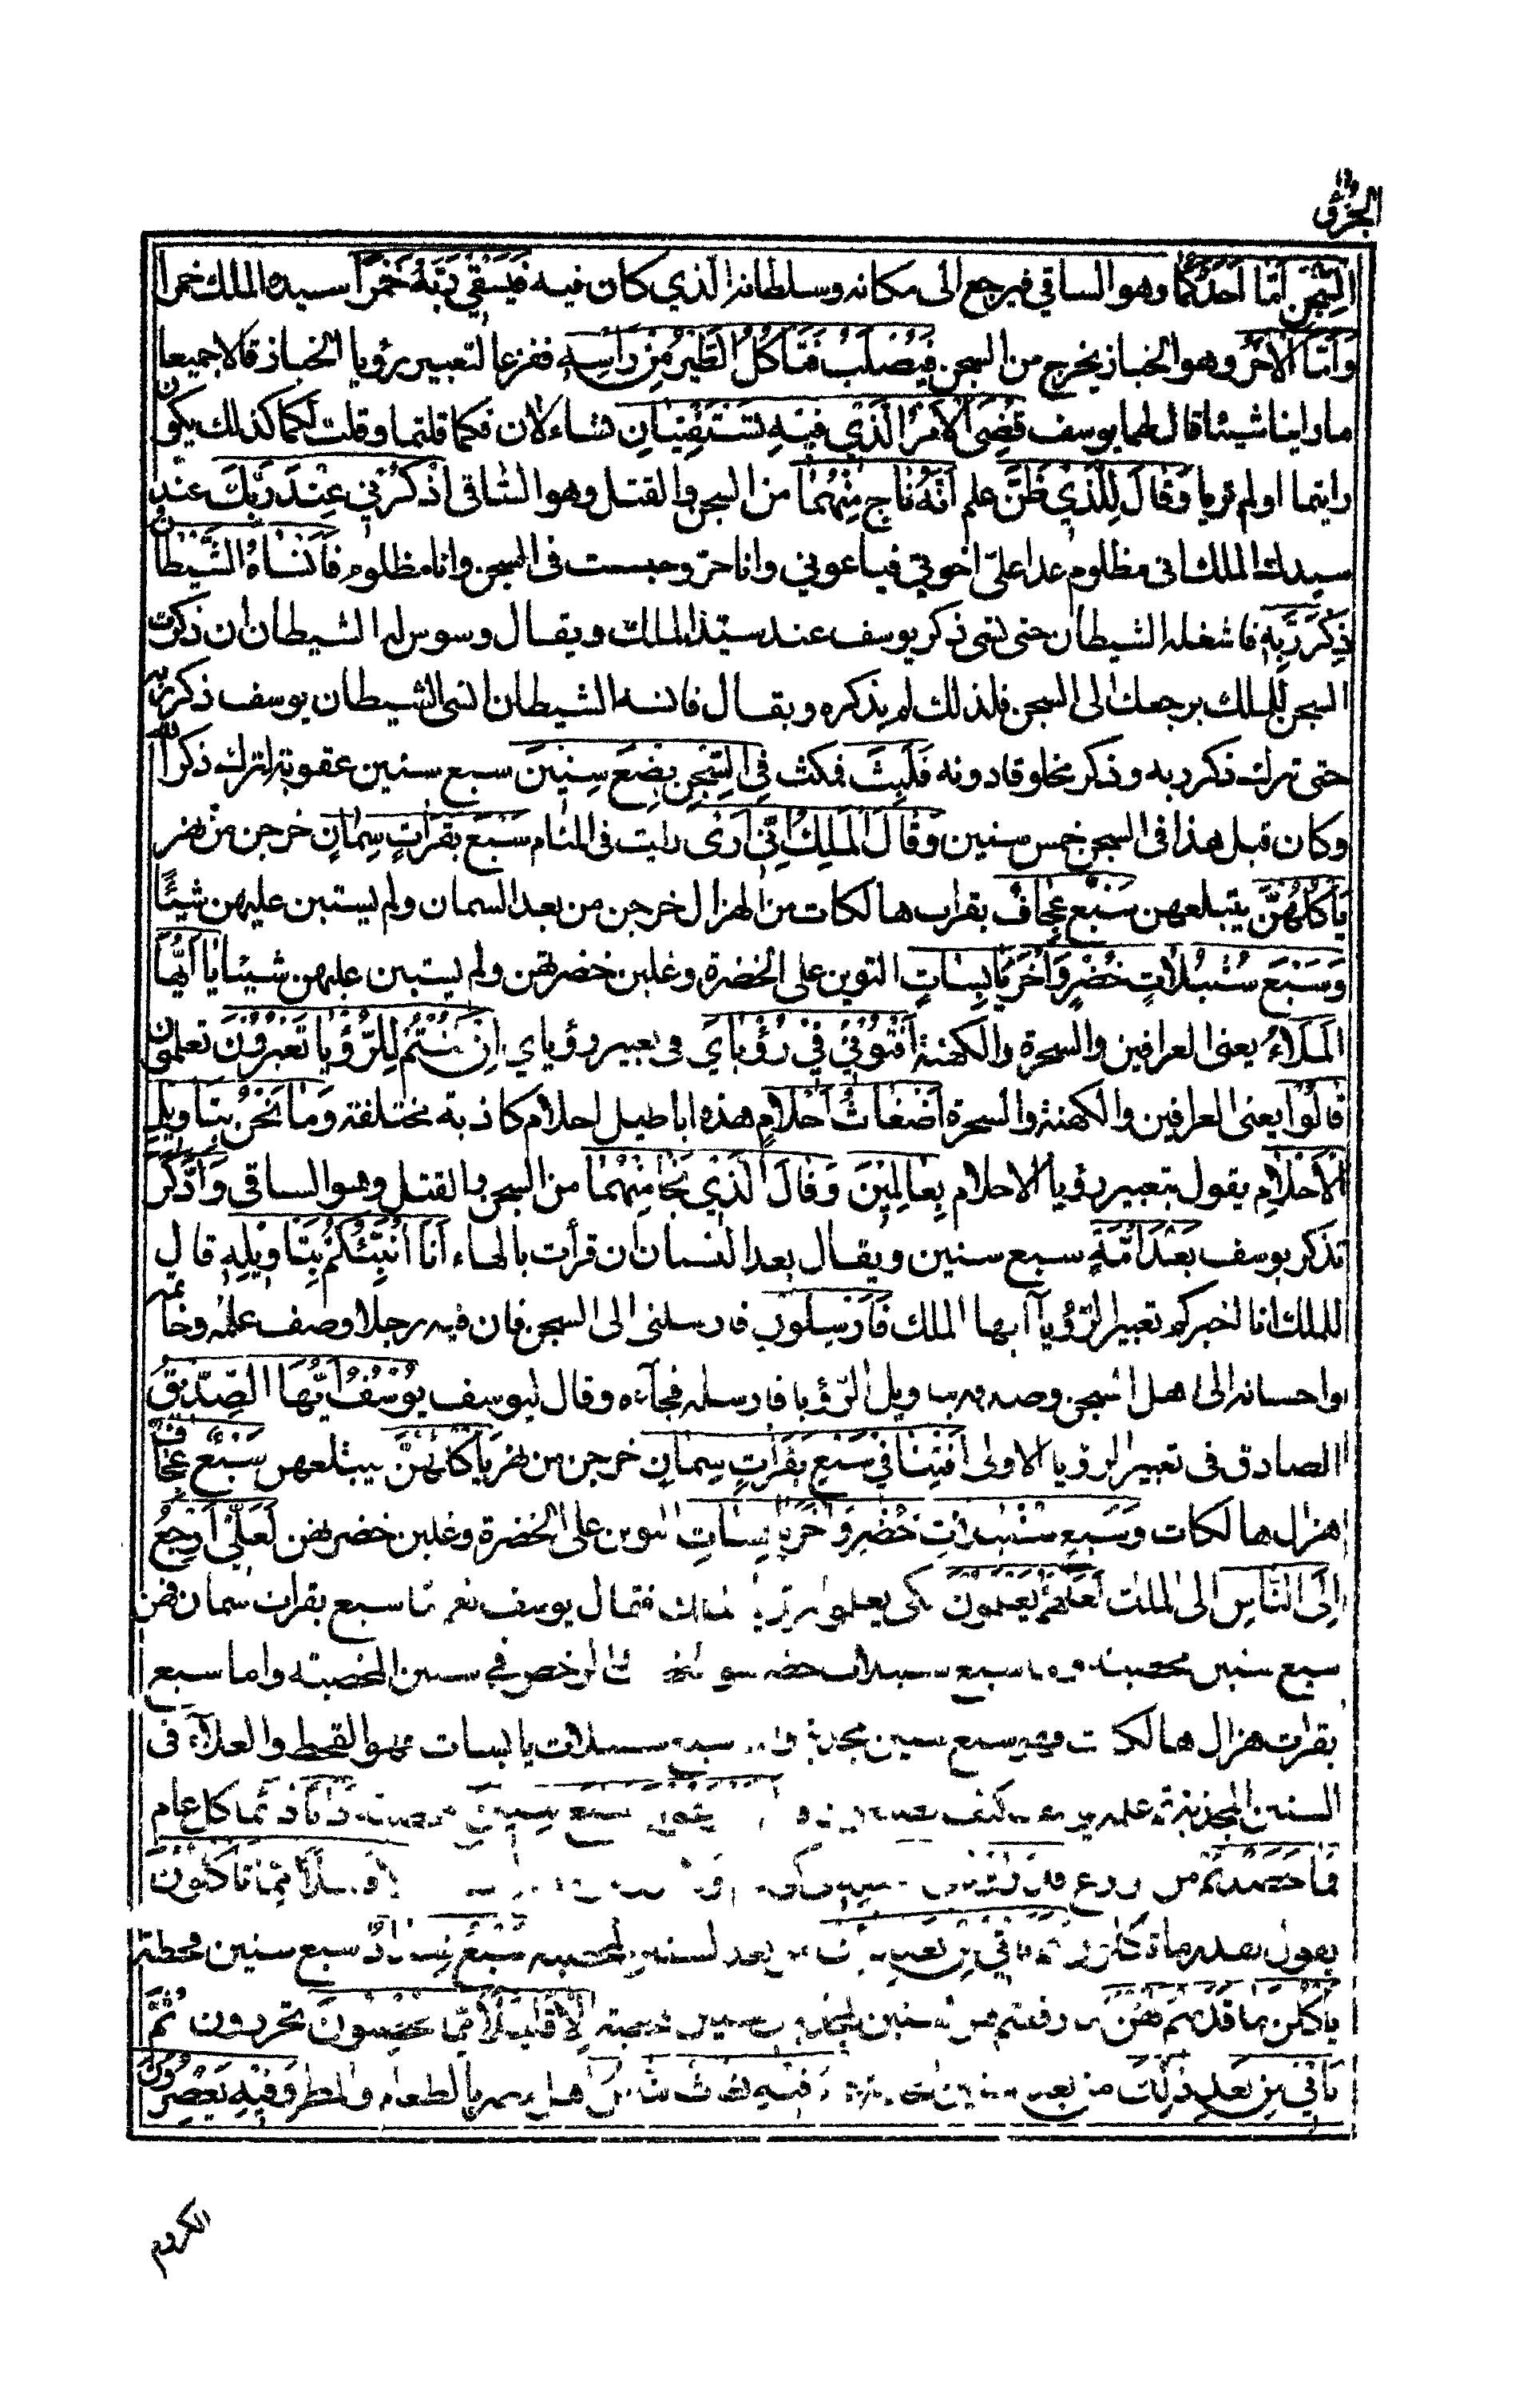 الجزؤ
السِّجْنِ أَمَّا أَحَدُكُمَا وهو الساقي فيرجع الى مكانه وسلطانه الذي كان فيه فَيَسْقِي رَبَّهُ خَمْرًا سيده الملك خمرا
وَأَمَّا الْآخَرُ وهو الخباز يخرج من السجن فَيُصْلَبُ فَتَأْكُلُ الطَّيْرُ مِنْ رَأْسِهِ ففزعا لتعبير رؤيا الخباز قالا جميعا
ما راينا شيئا قال لهما يوسف قُضِيَ الْأَمْرُ الَّذِي فِيهِ تَسْتَفْتِيَانِ تسئلان فكما قلتما وقلت لكما كذلك يكون
رايتما او لم تريا وَقَالَ لِلَّذِي ظَنَّ علم أَنَّهُ نَاجٍ مِنْهُمَا من السجن والقتل وهو الساقى اذْكُرْنِي عِنْدَ رَبِّكَ عند
سيدك الملك انى مظلوم عدا علىّ اخوتي فباعوني وانا حرّ وحبست فى السجن وانا مظلوم فَأَنْسَاهُ الشَّيْطَانُ
ذِكْرَ رَبِّهِ فاشغله الشيطان حتى نسى ذكر يوسف عند سيّده الملك ويقال وسوس له الشيطان ان ذكرت
السجن للملك يرجعك الى السجن فلذلك لم يذكره ويقال فانسه الشيطان انسى الشيطان يوسف ذكر ربه
حتى ترك ذكر ربه وذكر مخلوقا دونه فَلَبِثَ فمكث فِي السِّجْنِ بِضْعَ سِنِينَ سبع سنين عقوبة لترك ذكر الله
وكان قبل هذا فى السجن خمس سنين وَقَالَ الْمَلِكُ إِنِّي أَرَى رايت فى المنام سَبْعَ بَقَرَاتٍ سِمَانٍ خرجن من نهر
يَأْكُلُهُنَّ يبتلعهن سَبْعٌ عِجَافٌ بقرات هالكات من الهزال خرجن من بعد السمان ولم يستبن عليهن شيئًا
وَسَبْعَ سُنْبُلَاتٍ خُضْرٍ وَأُخَرَ يَابِسَاتٍ التوين على الخضرة وغلبن خضرتهن ولم يستبن عليهن شيئا يَا أَيُّهَا
الْمَلَأُ يعنى العرافين والسحرة والكهنة أَفْتُونِي فِي رُؤْيَايَ فى تعبير رؤياي إِنْ كُنْتُمْ لِلرُّؤْيَا تَعْبُرُونَ تعلمون
قَالُوا يعنى العرافين والكهنة والسحرة أَضْغَاثُ أَحْلَامٍ هذه اباطيل احلام كاذبة مختلفة وَمَا نَحْنُ بِتَأْوِيلِ
الْأَحْلَامِ يقول بتعبير رؤيا الاحلام بِعَالِمِينَ وَقَالَ الَّذِي نَجَا مِنْهُمَا من السجن والقتل وهو الساقى وَادَّكَرَ
تذكر يوسف بَعْدَ أُمَّةٍ سبع سنين ويقال بعد النسيان ان قرأت بالهاء أَنَا أُنَبِّئُكُمْ بِتَأْوِيلِهِ قال
للملك انا اخبركم تعبير الرؤيا ايها الملك فَأَرْسِلُونِ فارسلنى الى السجن فان فيه رجلا وصف علمه وحلمه
واحسانه الى اهل السجن وصدقه بتاويل الرّؤيا فارسله فجآءه وقال ليوسف يُوسُفُ أَيُّهَا الصِّدِّيقُ
الصادق فى تعبير الرؤيا الاولى أَفْتِنَا فِي سَبْعِ بَقَرَاتٍ سِمَانٍ خرجن من نهر يَأْكُلُهُنَّ يبتلعهن سَبْعٌ عِجَافٌ
هزال هالكات وَسَبْعِ سُنْبُلَاتٍ خُضْرٍ وَأُخَرَ يَابِسَاتٍ التوين على الخضرة وغلبن خضرتهن لَعَلِّي أَرْجِعُ
إِلَى النَّاسِ الى الملك لَعَلَّهُمْ يَعْلَمُونَ لكى يعلموا الملك فقال يوسف نعم اما سبع بقرات سمان فهن
سبع سنين مخصبة سبع سنبلات خضر الرخص في سنين المخصبة واما سبع
بقرات هزال هالكات فهى سبع سنين مجدبة سنبلات يابسات فهو القحط والغلآء فى
السنين المجدبة ثم علمهم يوسف كيف سَبْعَ سِنِينَ دَأَبًا دائما كل عام
فَمَا حَصَدْتُمْ من الزرع فَذَرُوهُ إِلَّا قَلِيلًا مِمَّا تَأْكُلُونَ
يقول بقدر ما تاكلون ثُمَّ يَأْتِي مِنْ بَعْدِ ذَلِكَ من بعد السنين المخصبة سَبْعٌ شِدَادٌ سبع سنين قحطة
يَأْكُلْنَ مَا قَدَّمْتُمْ لَهُنَّ ما رفعتم سنين المجدبة إِلَّا قَلِيلًا مِمَّا تُحْصِنُونَ تحرزون ثُمَّ
يَأْتِي مِنْ بَعْدِ ذَلِكَ من بعد فِيهِ يُغَاثُ النَّاسُ اهل مصر بالطعام والمطر وَفِيهِ يَعْصِرُونَ
الكروم